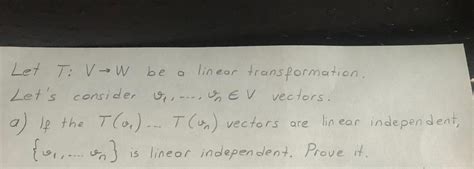 Let T: V → W be a linear transformation.
Let's consider v₁, ..., vₙ ∈ V vectors.
a) If the T(v₁) ... T(vₙ) vectors are linear independent,
{v₁, ... vₙ} is linear independent. Prove it.